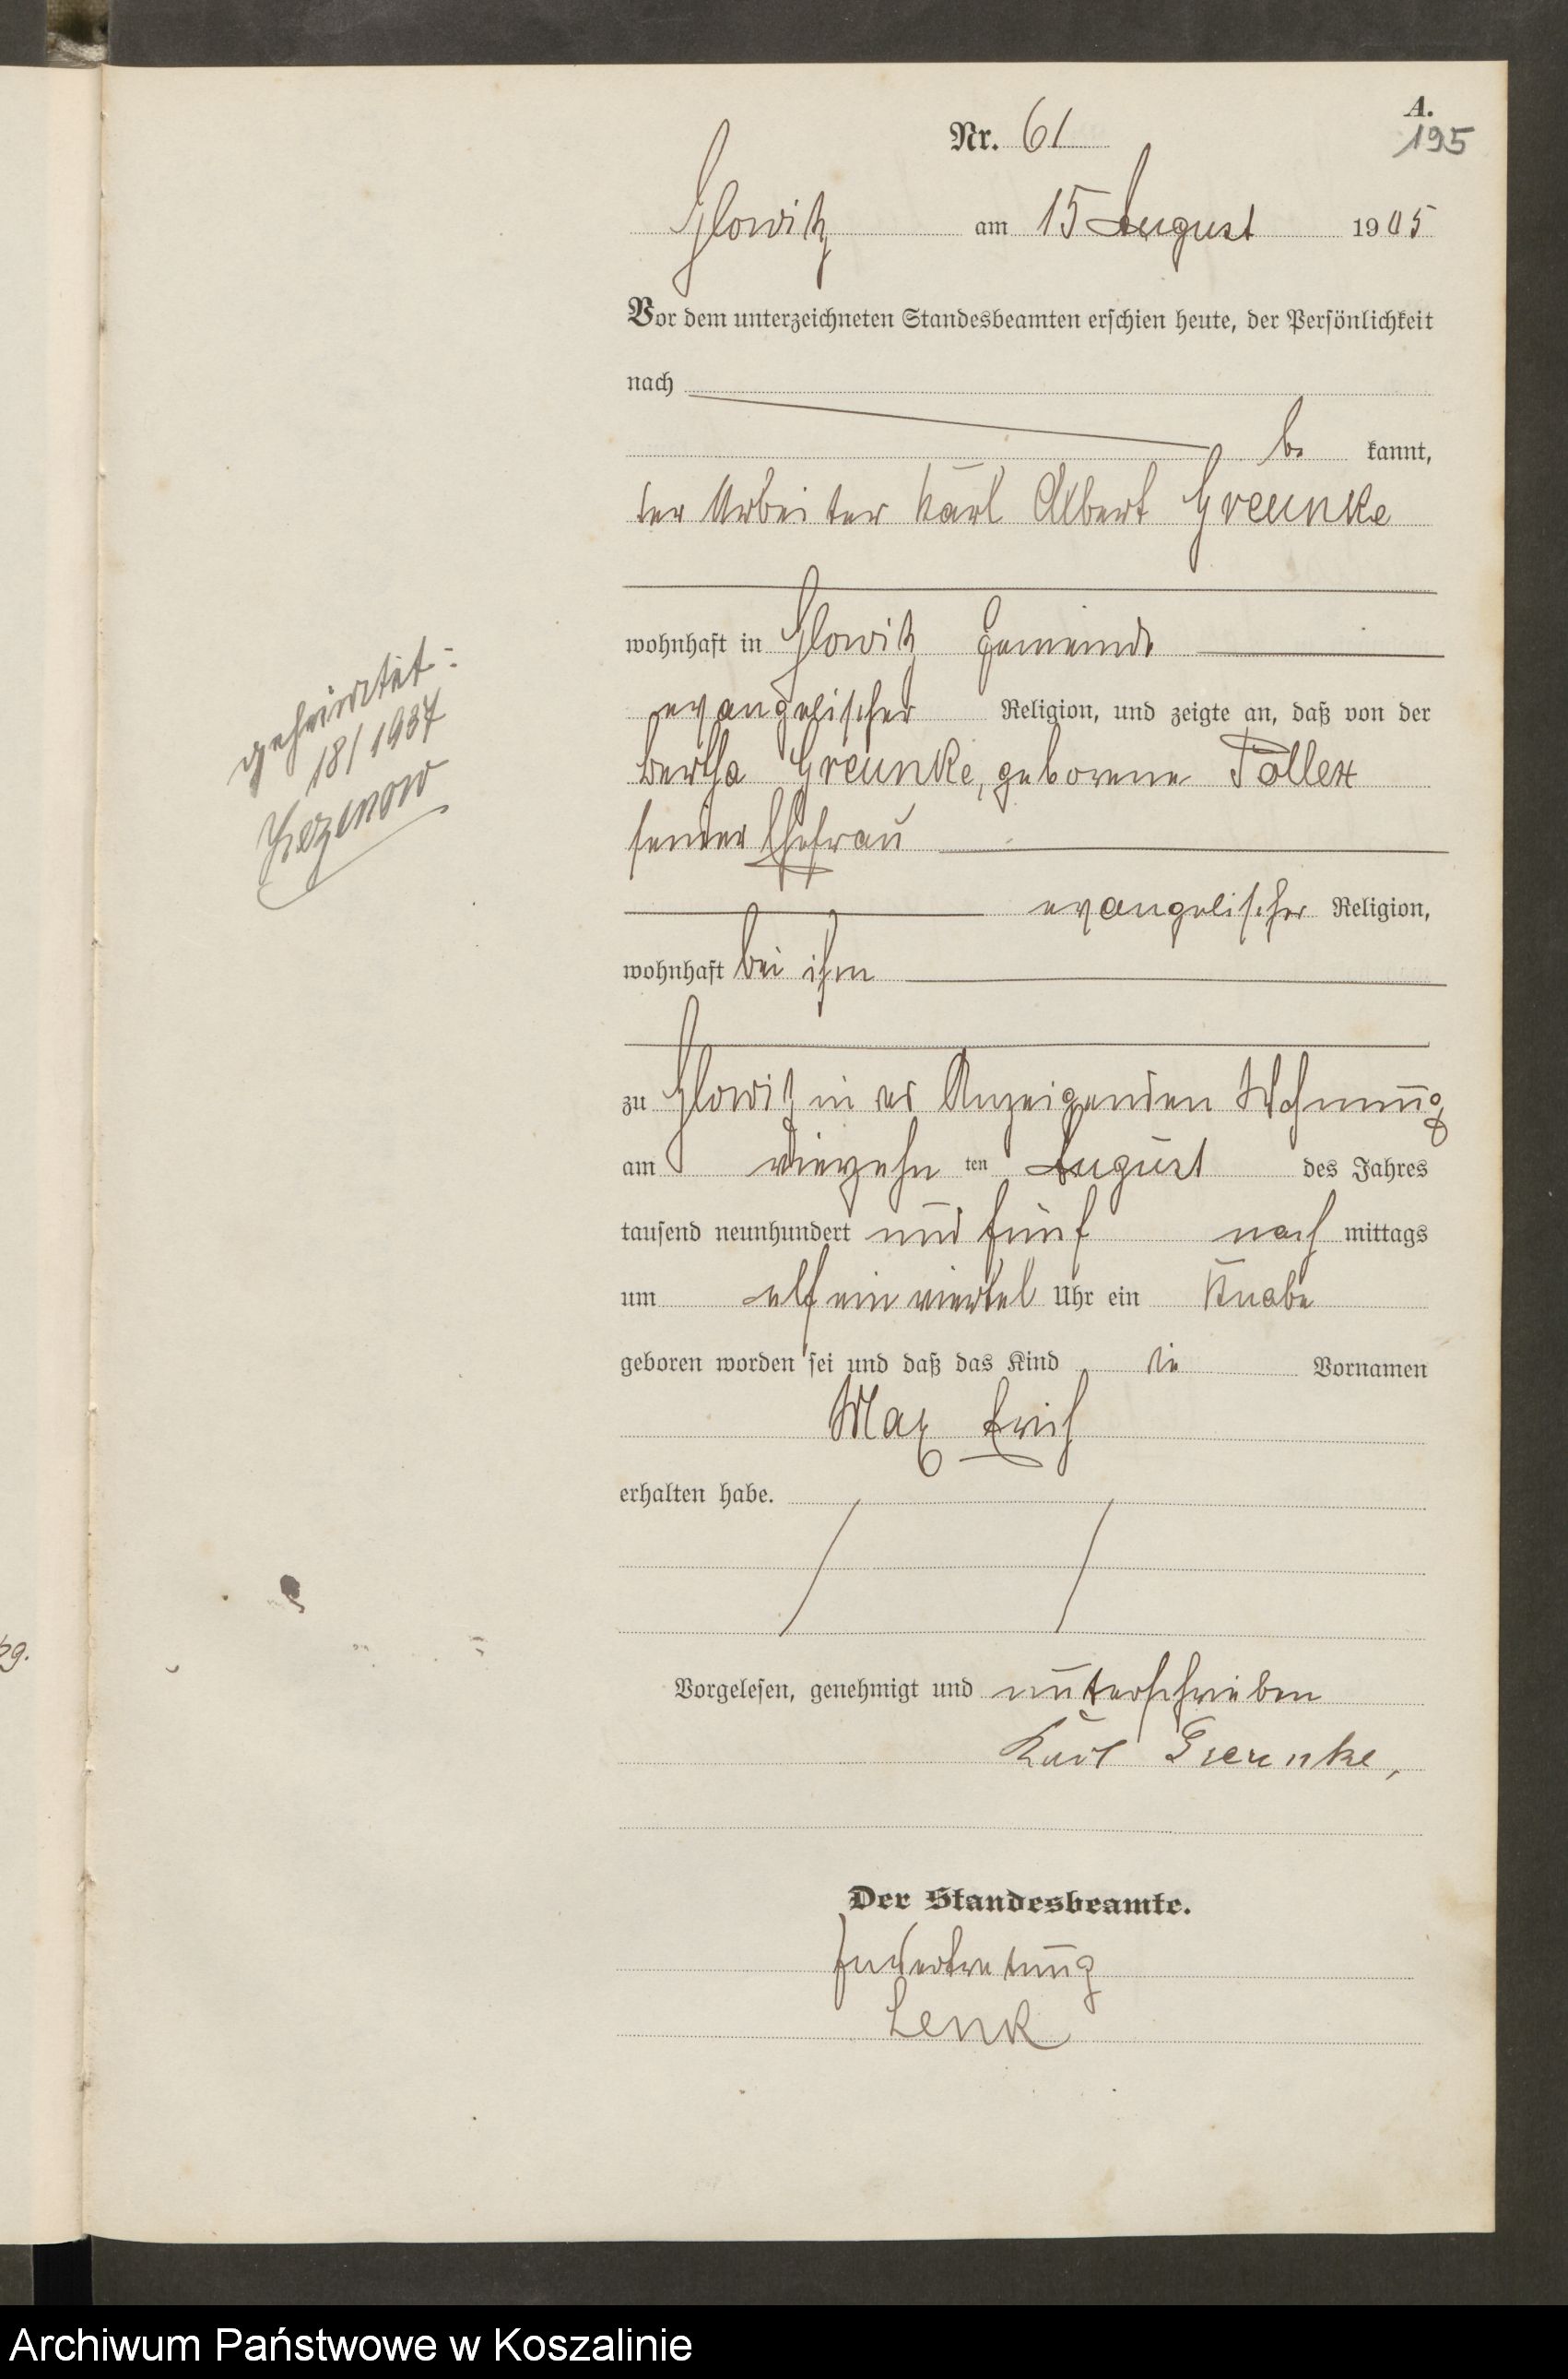 A.
195
Nr. 61
Glowitz am 15 August 1905
Vor dem unterzeichneten Standesbeamten erschien heute, der Persönlichkeit
nach
be kannt,
der Arbeiter Karl Albert Greunke
wohnhaft in Glowitz Gemeinde
evangelischer Religion, und zeigte an, daß von der
Bertha Greunke, geborene
seiner Ehefrau
evangelischer Religion,
wohnhaft bei ihm
geheiratet:
18/1937
Zezenow
zu Glowitz in des Anzeigenden Wohnung
am vierzehn ten August des Jahres
tausend neunhundert und fünf nach mittags
um elf ein viertel Uhr ein Knabe
geboren worden sei und daß das Kind die Vornamen
Max Erich
erhalten habe.
bg.
Vorgelesen, genehmigt und unterschrieben
Karl Greunke,
Der Standesbeamte.
In Vertretung
Lenk
Archiwum Państwowe w Koszalinie